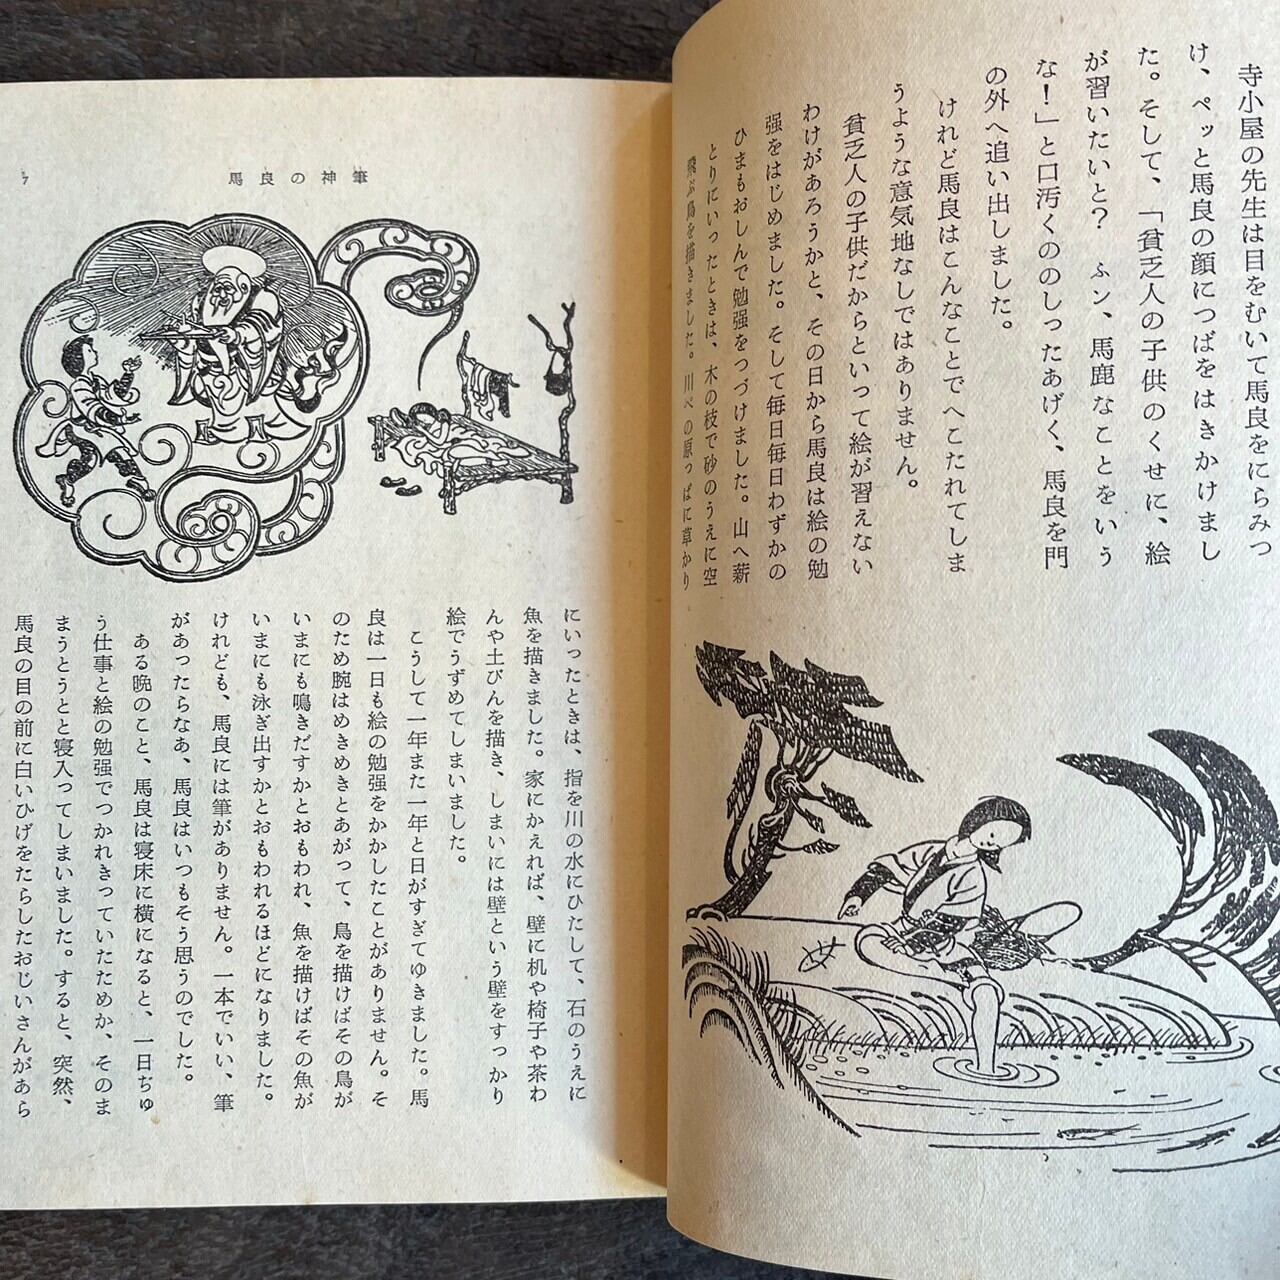 寺小屋の先生は目をむいて馬良をにらみつ
け、ペッと馬良の顔につばをはきかけまし
た。そして、「貧乏人の子供のくせに、絵
が習いたいと？　ふン、馬鹿なことをいう
な！」と口汚くののしったあげく、馬良を門
の外へ追い出しました。
けれど馬良はこんなことでへこたれてしま
うような意気地なしではありません。
貧乏人の子供だからといって絵が習えない
わけがあろうかと、その日から馬良は絵の勉
強をはじめました。そして毎日毎日わずかの
ひまもおしんで勉強をつづけました。山へ薪
とりにいったときは、木の枝で砂のうえに空
飛ぶ鳥を描きました。川べの原っぱに草かり
馬良の神筆
7
にいったときは、指を川の水にひたして、石のうえに
魚を描きました。家にかえれば、壁に机や椅子や茶わ
んや土びんを描き、しまいには壁という壁をすっかり
絵でうずめてしまいました。
こうして一年また一年と日がすぎてゆきました。馬
良は一日も絵の勉強をかかしたことがありません。そ
のため腕はめきめきとあがって、鳥を描けばその鳥が
いまにも鳴きだすかとおもわれ、魚を描けばその魚が
いまにも泳ぎ出すかとおもわれるほどになりました。
けれども、馬良には筆がありません。一本でいい、筆
があったらなあ、馬良はいつもそう思うのでした。
ある晩のこと、馬良は寝床に横になると、一日ぢゅ
う仕事と絵の勉強でつかれきっていたためか、そのま
まうとうとと寝入ってしまいました。すると、突然、
馬良の目の前に白いひげをたらしたおじいさんがあら